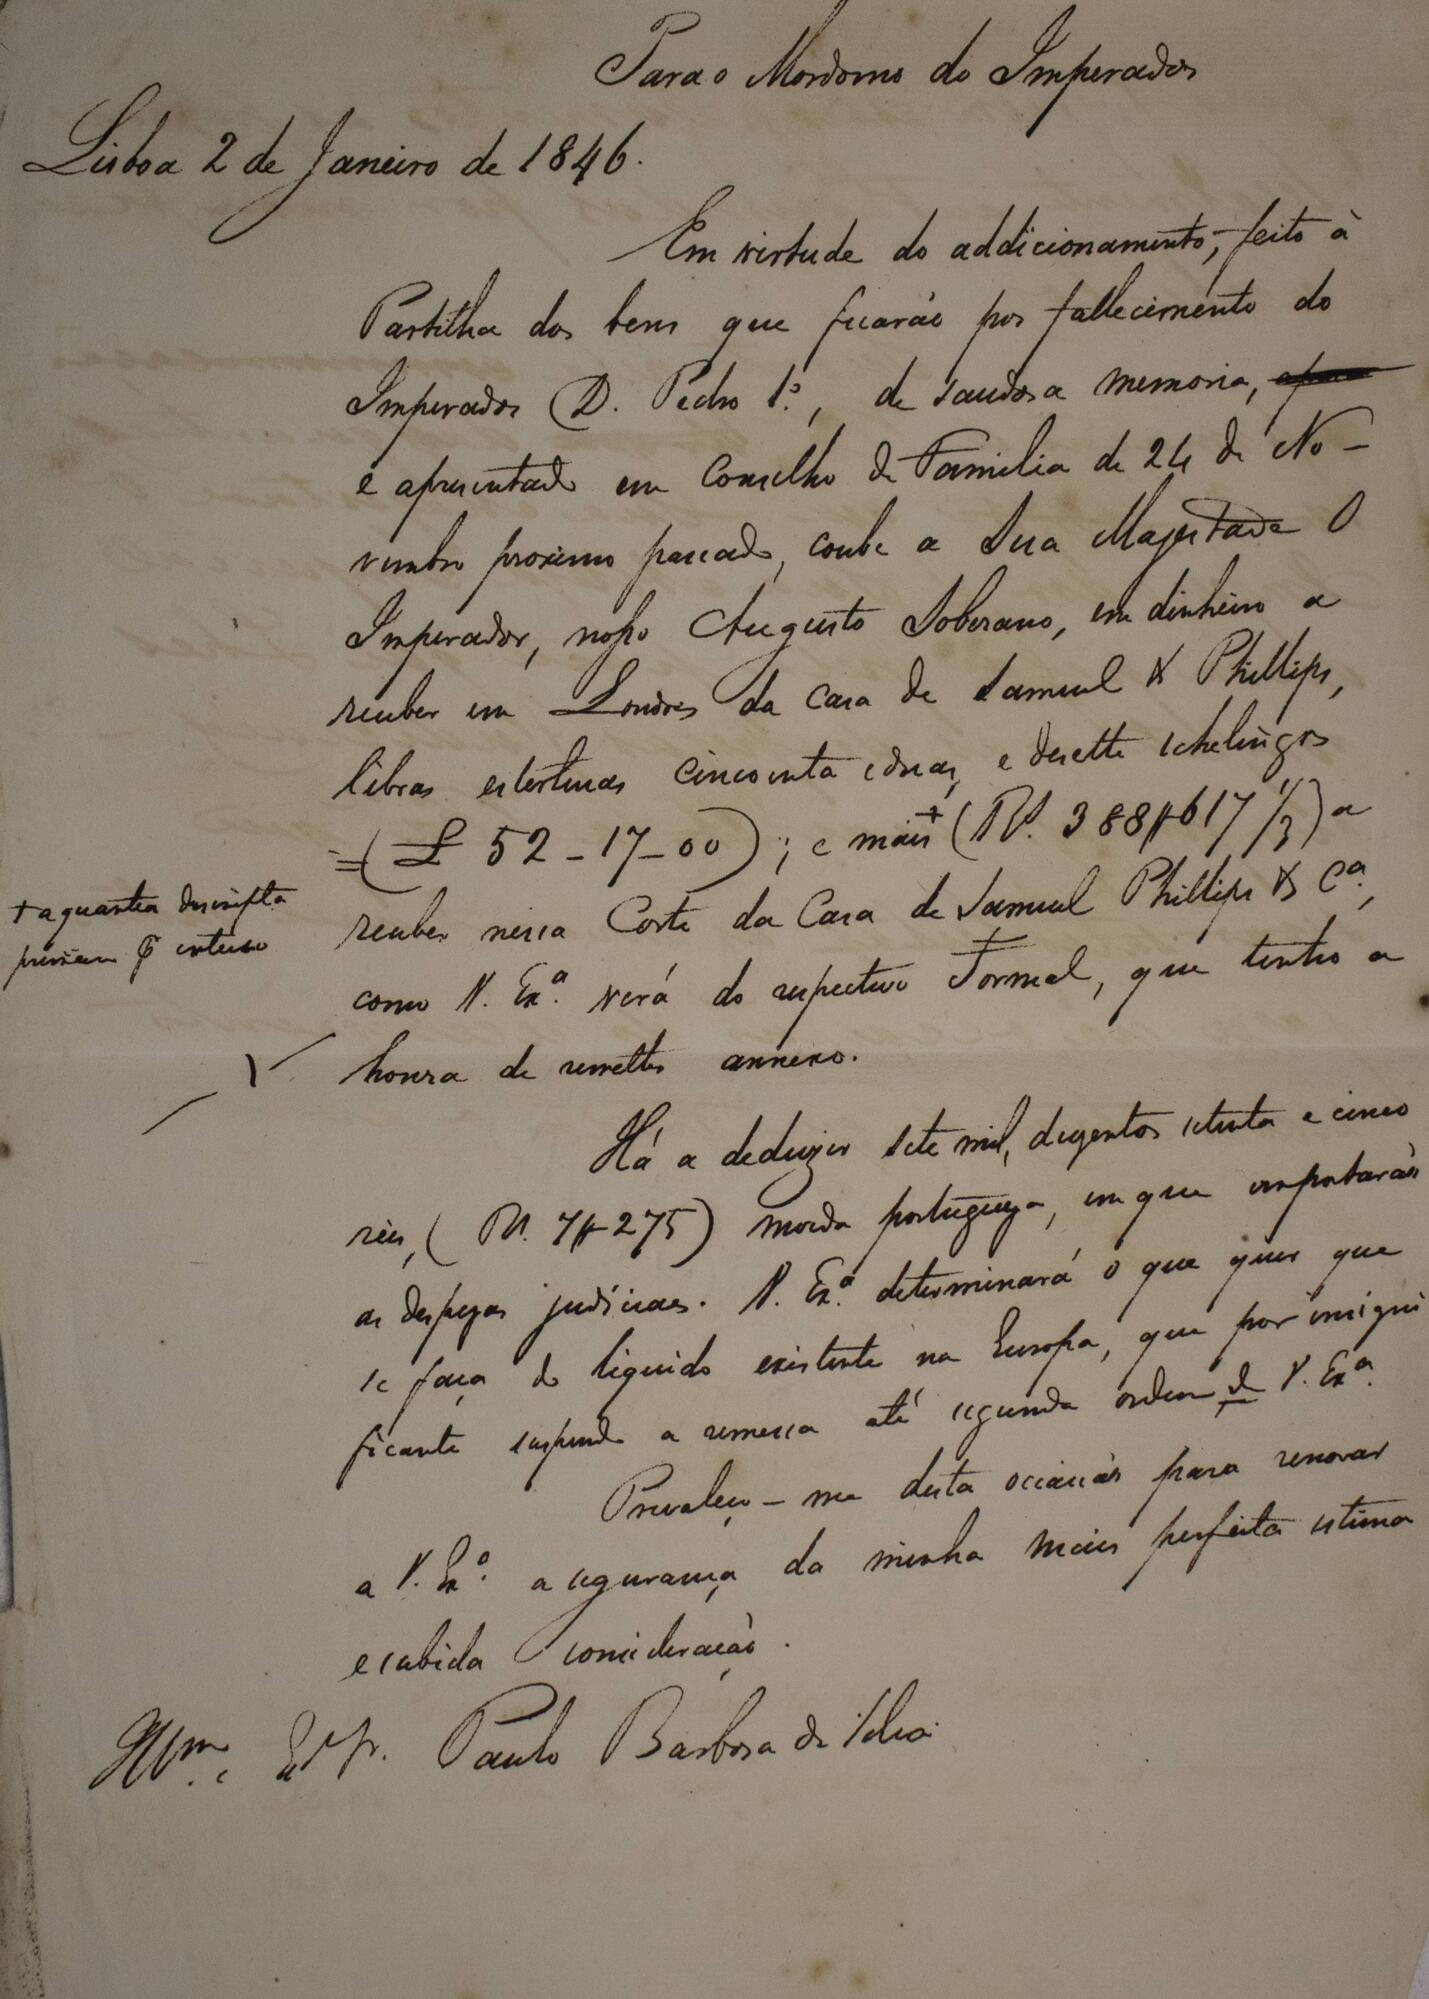 Para o Mordomo do Imperador
Lisboa 2 de Janeiro de 1846.
Em virtude do addicionamento, feito á
Partilha dos bens que ficarão por fallecimento do
Imperador D. Pedro 1º, de saudosa memoria,
e apresentado em Conselho de Familia de 24 de No-
vembro proximo passado, coube a Sua Magestade O
Imperador, nosso Augusto Soberano, em dinheiro a
receber em Londres da Casa de Samuel & Phillips,
libras esterlinas cincoenta e duas, e desette schelingos
=(£ 52-17-00); e mais + (Rs. 388#617 1/3) a
receber nessa Corte da Casa de Samuel Phillips & Cª,
+ a quantia descripta
por extenso
como V. Exª. verá do respectivo Formal, que tenho a
honra de remetter annexo.
Há a deduzir sete mil, duzentos setenta e cinco
réis, (Rs. 7#275) moeda portugueza, em que importarão
as despezas judiciaes. V. Exª. determinará o que quer que
se faça do liquido existente na Europa, que por insigni
ficante suspendo a remessa até segunda ordem de V. Exª.
Prevaleço-me desta occasião para renovar
a V. Exª. a segurança da minha mais perfeita estima
e subida consideração.
Illmo. e Exmo. Sr. Paulo Barbosa da Silva